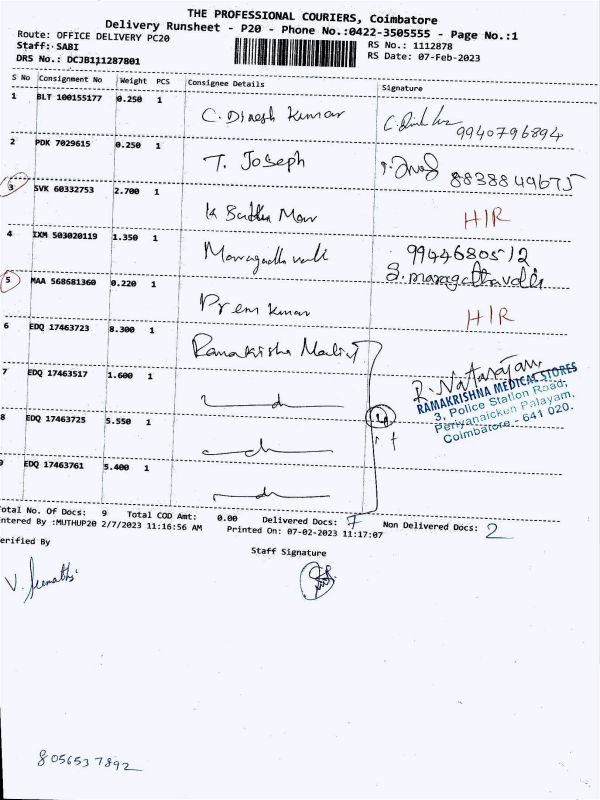 THE PROFESSIONAL COURIERS, Coimbatore
Delivery Runsheet - P20 - Phone No.:0422-3505555 - Page No.:1
Route: OFFICE DELIVERY PC20
RS No.: 1112878
Staff: SABI
RS Date: 07-Feb-2023
DRS No.: DCJB111287801
S No Consignment No Weight PCS Consignee Details Signature
1 BLT 100155177 0.250 1
C. Dinesh Kumar
9940796894
2 PDK 7029615 0.250 1
T. Joseph
8838849675
3 SVK 60332753 2.700 1
H/R
4 IXM 503020119 1.350 1
9944680512
S. maragathavalli
5 MAA 568681360 0.220 1
Prem Kumar
H/R
6 EDQ 17463723 8.300 1
Ramakrishna
R. Natarajan
7 EDQ 17463517 1.600 1
RAMAKRISHNA MEDICAL STORES
3, Police Station Road,
Periyanaicken Palayam,
Coimbatore - 641 020.
8 EDQ 17463725 5.550 1
9 EDQ 17463761 5.400 1
Total No. Of Docs: 9 Total COD Amt: 0.00 Delivered Docs: 7 Non Delivered Docs: 2
Entered By :MUTHUP20 2/7/2023 11:16:56 AM Printed On: 07-02-2023 11:17:07
Verified By
Staff Signature
8056537892